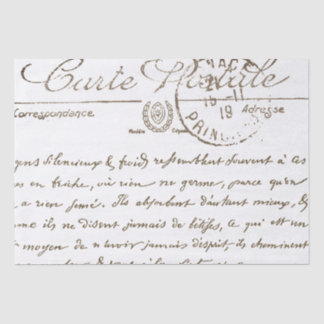 Carte Postale
PRINCI
15-11
19
Correspondance. Adresse
Modèle
gens silencieux & froids ressemblent souvent à ces
en friche, où rien ne germe, parce qu'on
a rien semé. Ils absorbent d'autant mieux, &
me ils ne disent jamais de bêtises, ce qui est un
moyen de n'avoir jamais d'esprit, ils cheminent